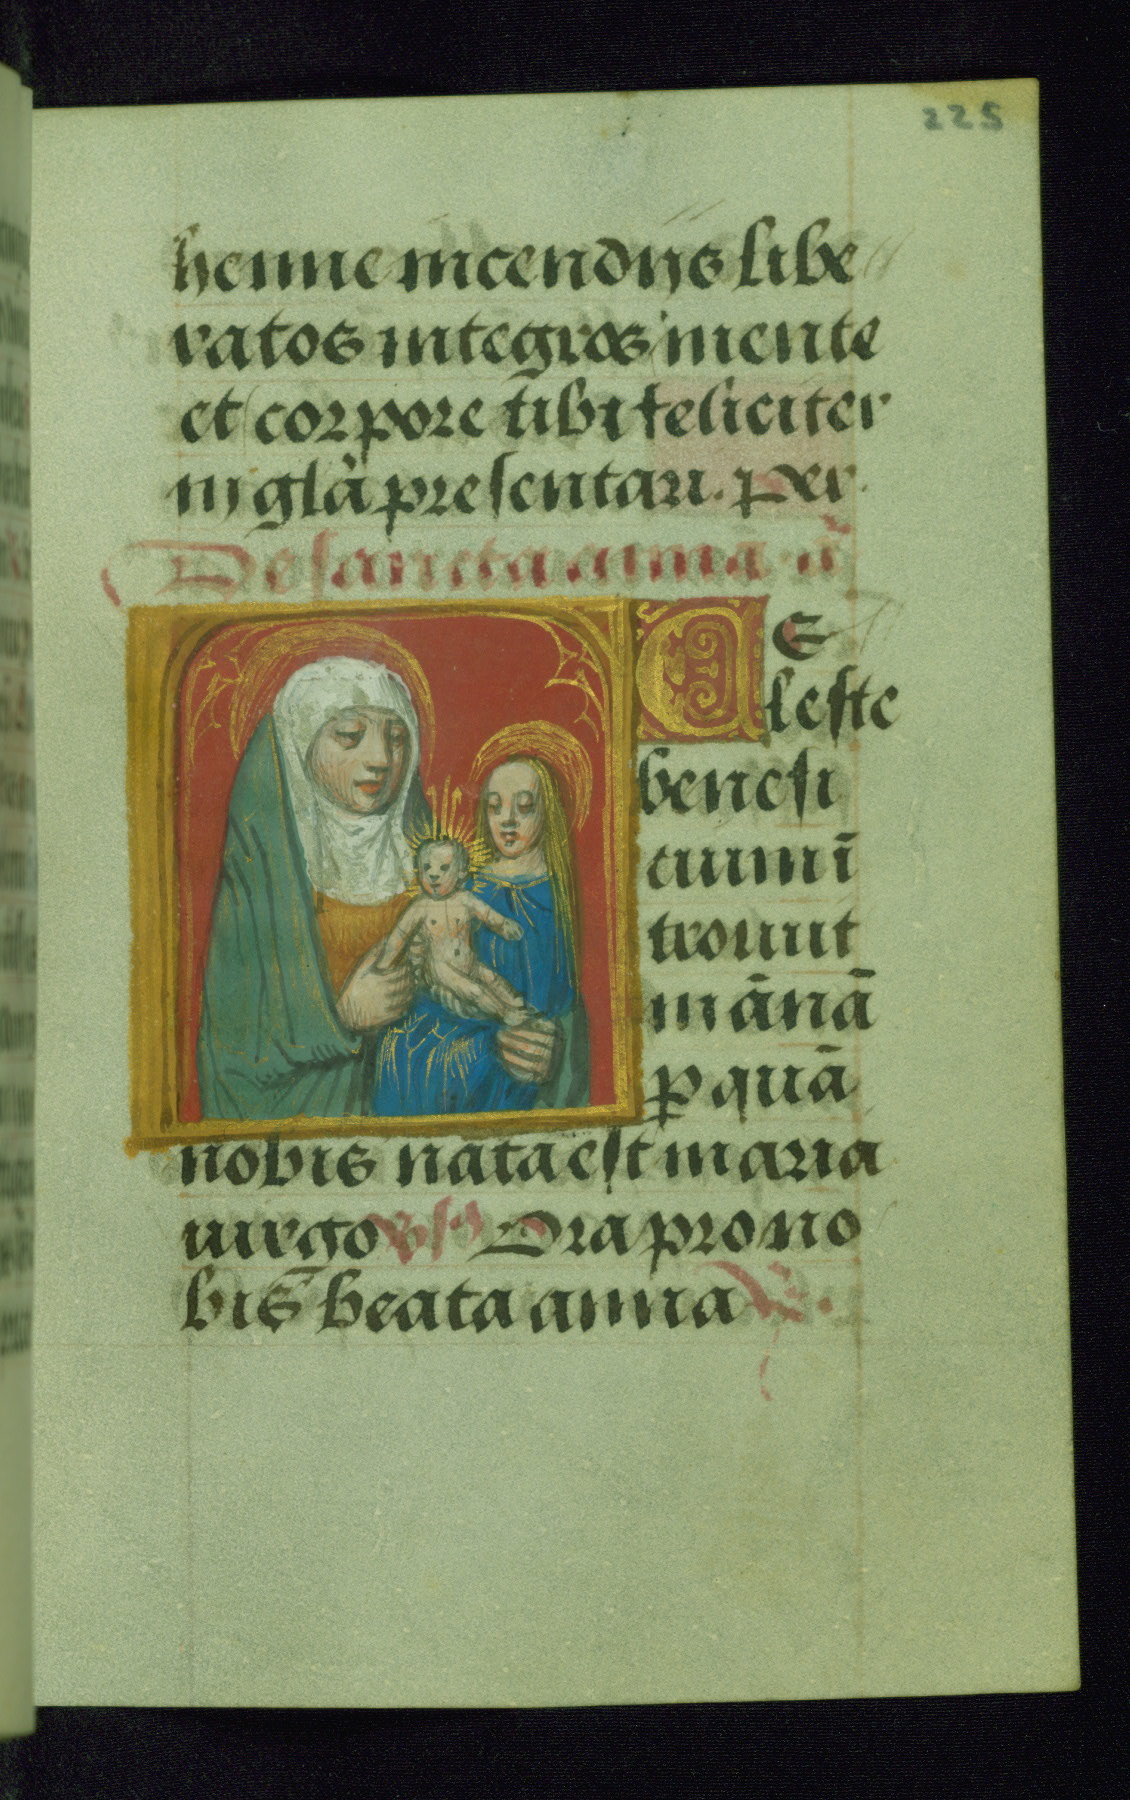 225
henne incendijs libe
ratos integros mente
et corpore tibi feliciter
in glã presentari. Per.
De sancta anna. añ
Ce
leste
benefi
cium ĩ
troiuit
in ãnã
p quã
nobis nata est maria
uirgo vs Ora pro no
bis beata anna R.